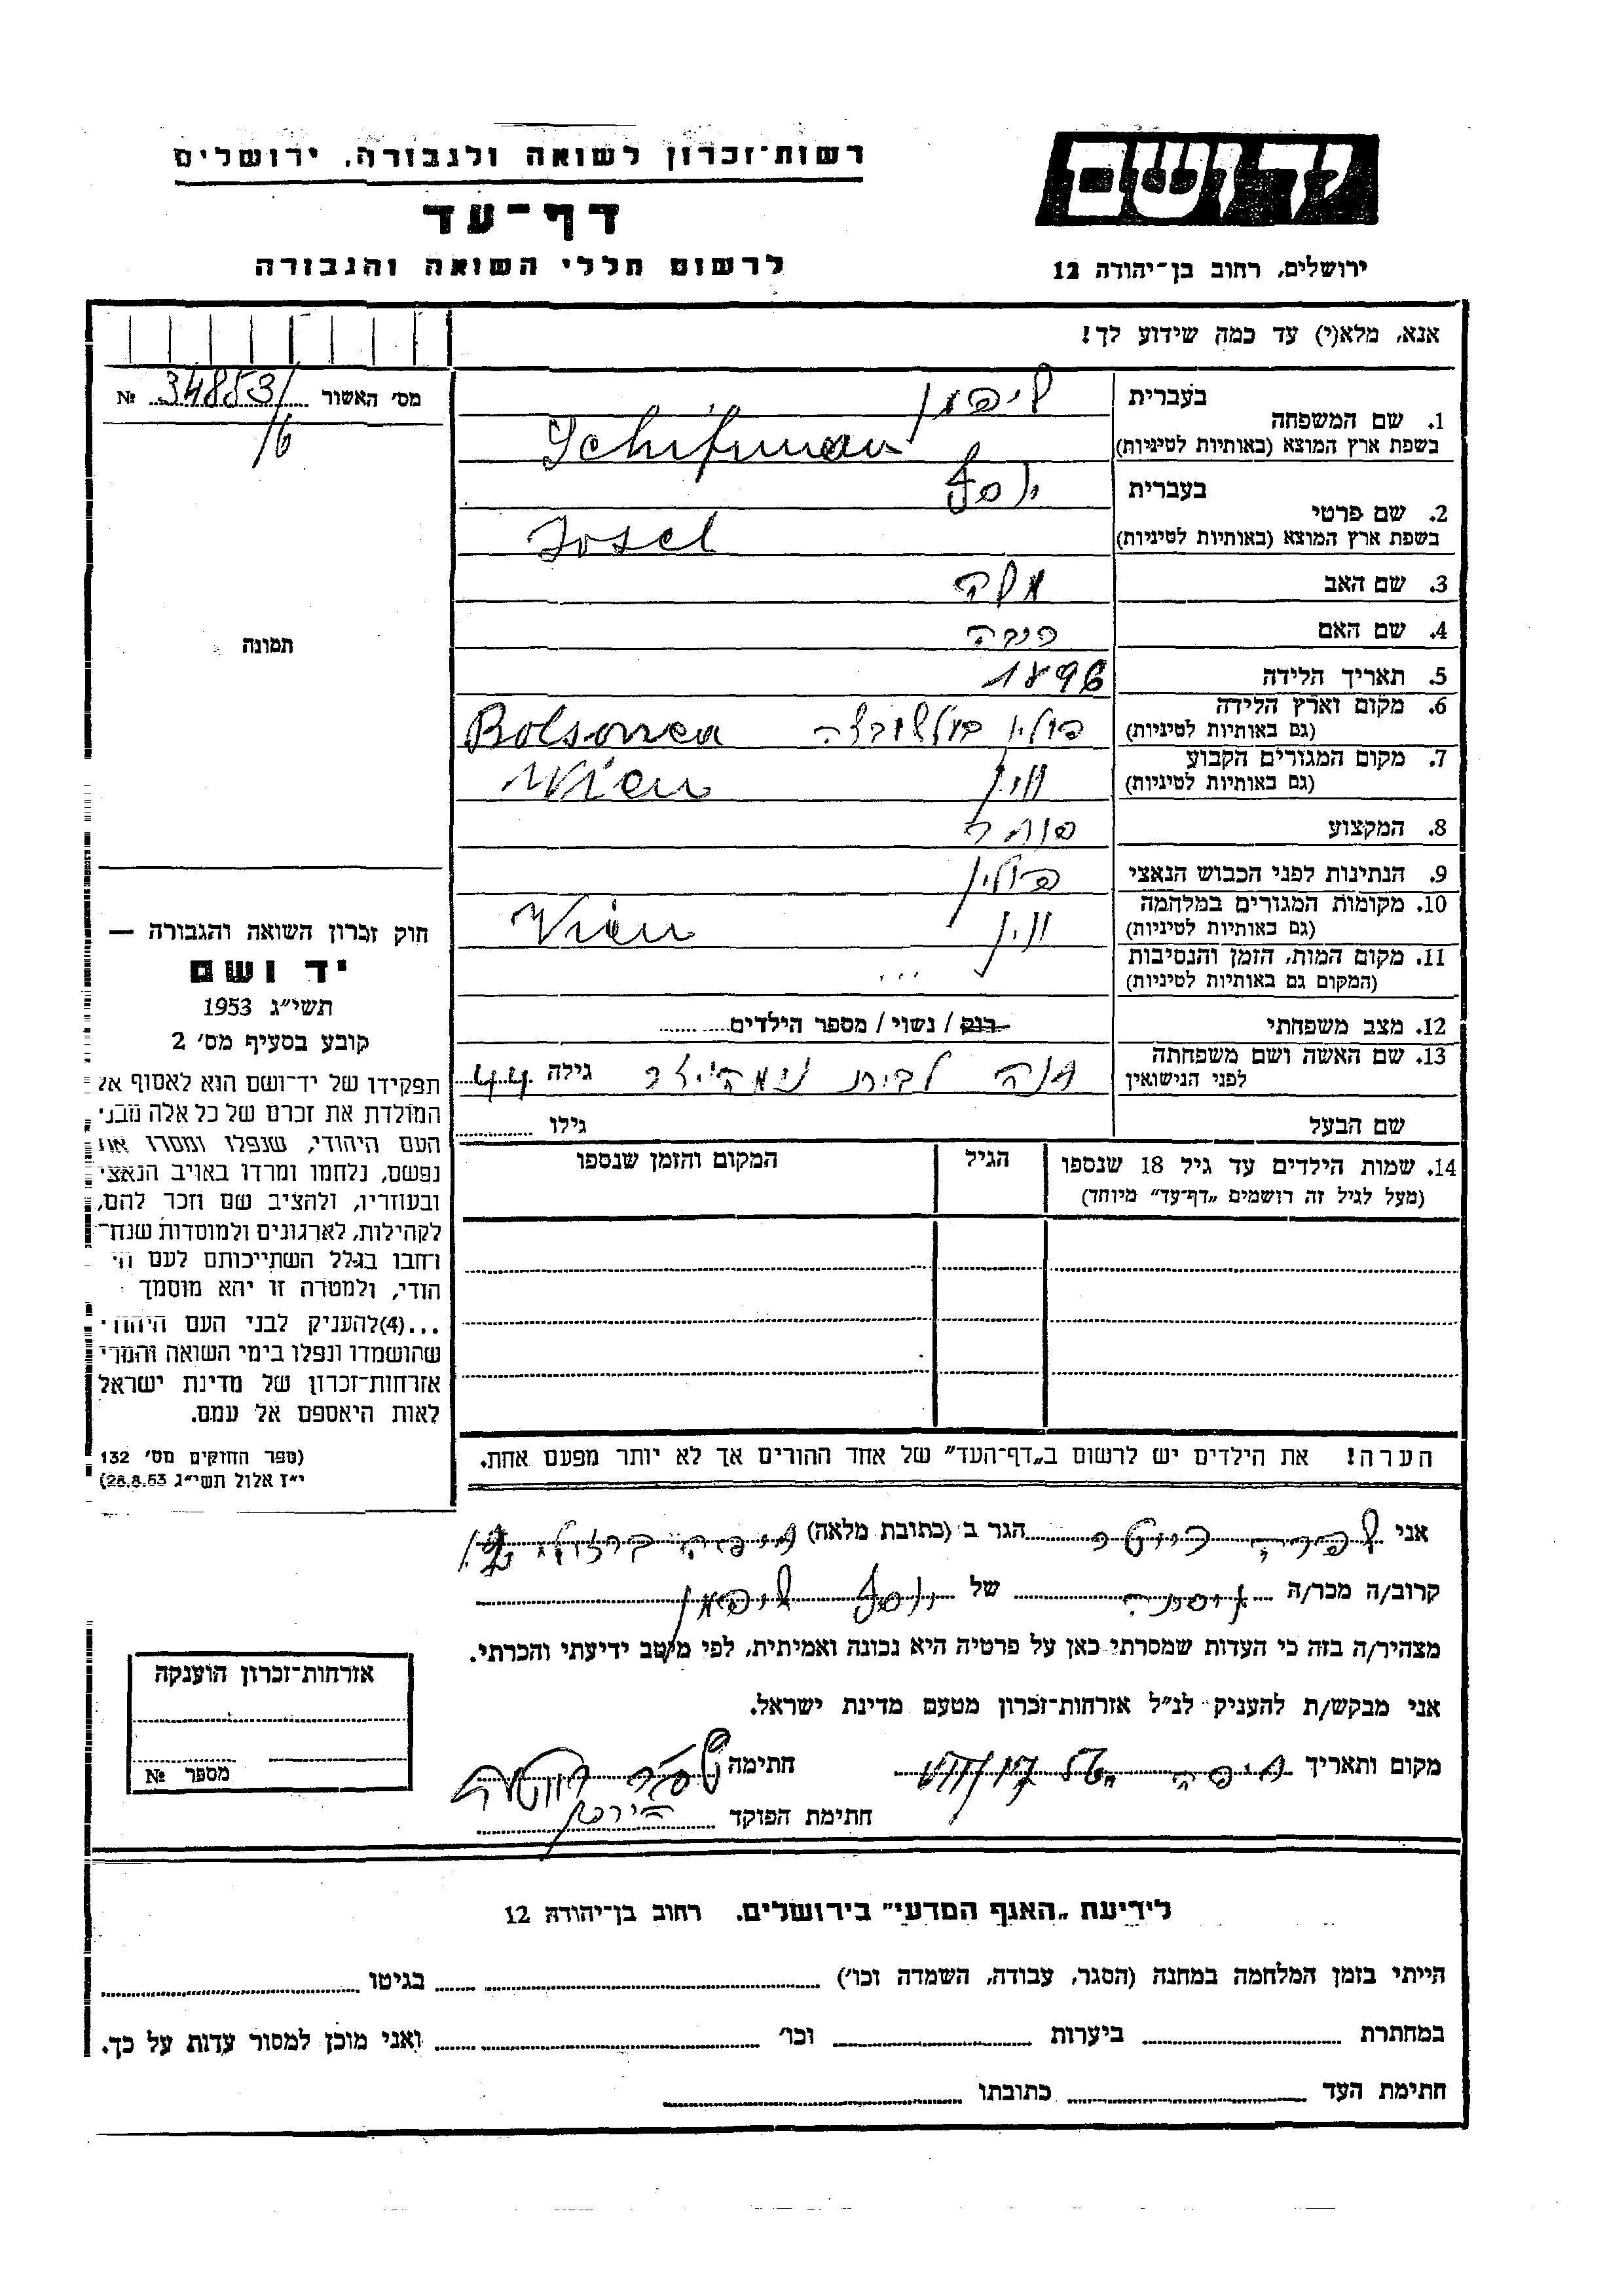 רשות־זכרון לשואה ולגבורה, ירושלים
יד ושם
דף-עד
לרשום חללי השואה והגבורה
ירושלים, רחוב בן־יהודה 12
אנא, מלא(י) עד כמה שידוע לך!
מס׳ האשור 34853/ №
/6
1. שם המשפחה
בעברית שיפמן
בשפת ארץ המוצא (באותיות לטיניות) Schifman
2. שם פרטי
בעברית יוסף
בשפת ארץ המוצא (באותיות לטיניות) Josel
3. שם האב משה
4. שם האם
5. תאריך הלידה 1896
6. מקום וארץ הלידה
(גם באותיות לטיניות) פולין Bolsowea
7. מקום המגורים הקבוע
(גם באותיות לטיניות) וין Wien
8. המקצוע סוחר
9. הנתינות לפני הכבוש הנאצי פולין
10. מקומות המגורים במלחמה
(גם באותיות לטיניות) וין Wien
11. מקום המות, הזמן והנסיבות
(המקום גם באותיות לטיניות)
12. מצב משפחתי רווק / נשוי / מספר הילדים
13. שם האשה ושם משפחתה
לפני הנישואין חנה לבית גילה 44
שם הבעל גילו
14. שמות הילדים עד גיל 18 שנספו הגיל המקום והזמן שנספו
(מעל לגיל זה רושמים „דף־עד” מיוחד)
הערה! את הילדים יש לרשום ב„דף־העד” של אחד ההורים אך לא יותר מפעם אחת.
תמונה
חוק זכרון השואה והגבורה —
יד ושם
תשי״ג 1953
קובע בסעיף מס׳ 2
תפקידו של יד־ושם הוא לאסוף אל
המולדת את זכרם של כל אלה מבני
העם היהודי, שנפלו ומסרו את
נפשם, נלחמו ומרדו באויב הנאצי
ובעוזריו, ולהציב שם וזכר להם,
לקהילות, לארגונים ולמוסדות שנח־
רחבו בגלל השתייכותם לעם הי
הודי, ולמטרה זו יהא מוסמך
...(4)להעניק לבני העם היהודי
שהושמדו ונפלו בימי השואה והמרי
אזרחות־זכרון של מדינת ישראל
לאות היאספם אל עמם.
(ספר החוקים מס׳ 132
י״ז אלול תשי״ג 28.8.53)
אני שפרה הגר ב (כתובת מלאה) חיפה
קרוב/ה מכר/ה של יוסף שיפמן
מצהיר/ה בזה כי העדות שמסרתי כאן על פרטיה היא נכונה ואמיתית, לפי מיטב ידיעתי והכרתי.
אני מבקש/ת להעניק לנ״ל אזרחות־זכרון מטעם מדינת ישראל.
מקום ותאריך חיפה חתימה
חתימת הפוקד
אזרחות־זכרון הוענקה
מספר №
לידיעת „האגף המדעי” בירושלים. רחוב בן־יהודה 12
הייתי בזמן המלחמה במחנה (הסגר, עבודה, השמדה וכו׳) בגיטו
במחתרת ביערות וכו׳ ואני מוכן למסור עדות על כך.
חתימת העד כתובתו